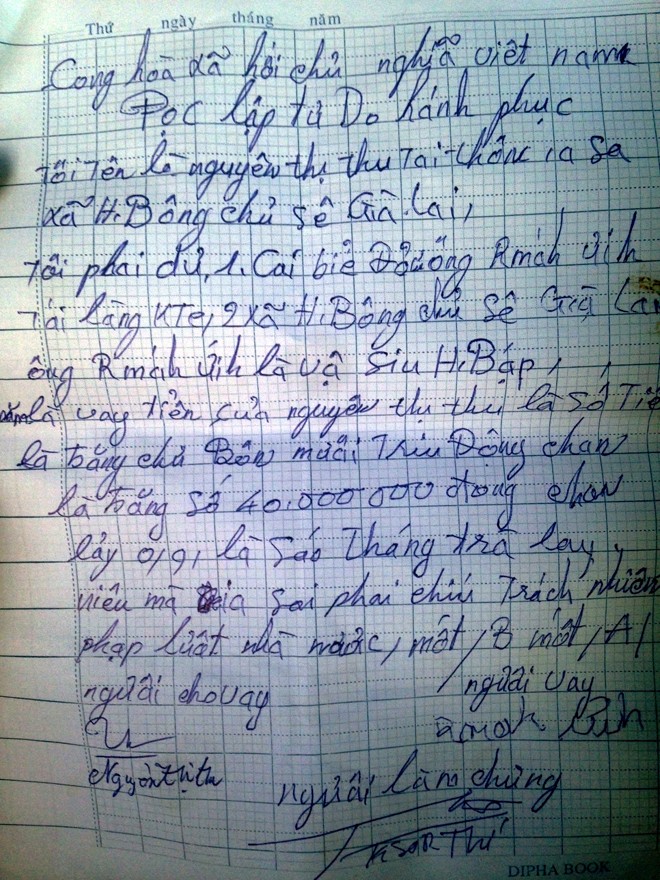 Thứ ngày tháng năm
Cong hoà xã hôi chủ nghĩã việt nam
Đọc lập tứ Do hánh phục
tôi Tên là nguyên thị thu Tai thôn ia Sa
xã H.Bông chủ Sê Gia Lai,
Tôi phai dứ, 1. Cai biẻ Rmáh ưih
Tái làng KTe, 2 xã H.Bông chủ Sê Gia Lai
ông Rmáh ưih là vậ Siu H.Báp,
là vay tiền của nguyên thụ thu là số Tiề
là bằng chủ Bôn mươi Triu Động chan
là bằng số 40.000 000 đong chan
lảy 0,9, là Sáo tháng trả lay,
niêu mà Sai phai chiu Trách nhiên
phạp luật nhà nước, một, B một, A,
ngưãi cho vay ngưãi vay
Nguyễn thị thu
ngưãi làm chứng
KSOR Thí
DIPHA BOOK